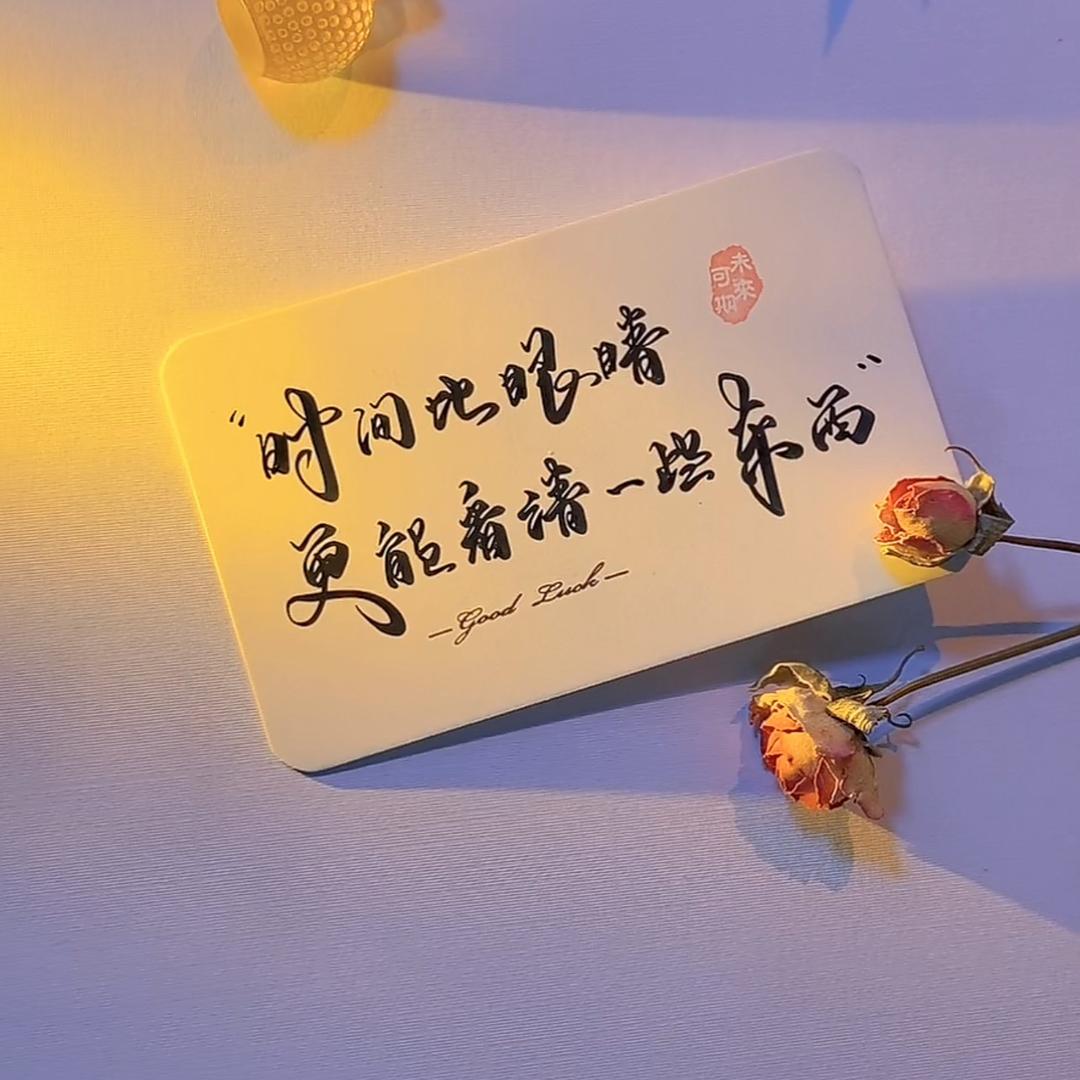 未来可期
“时间比眼睛
更能看清一些东西”
—Good Luck—